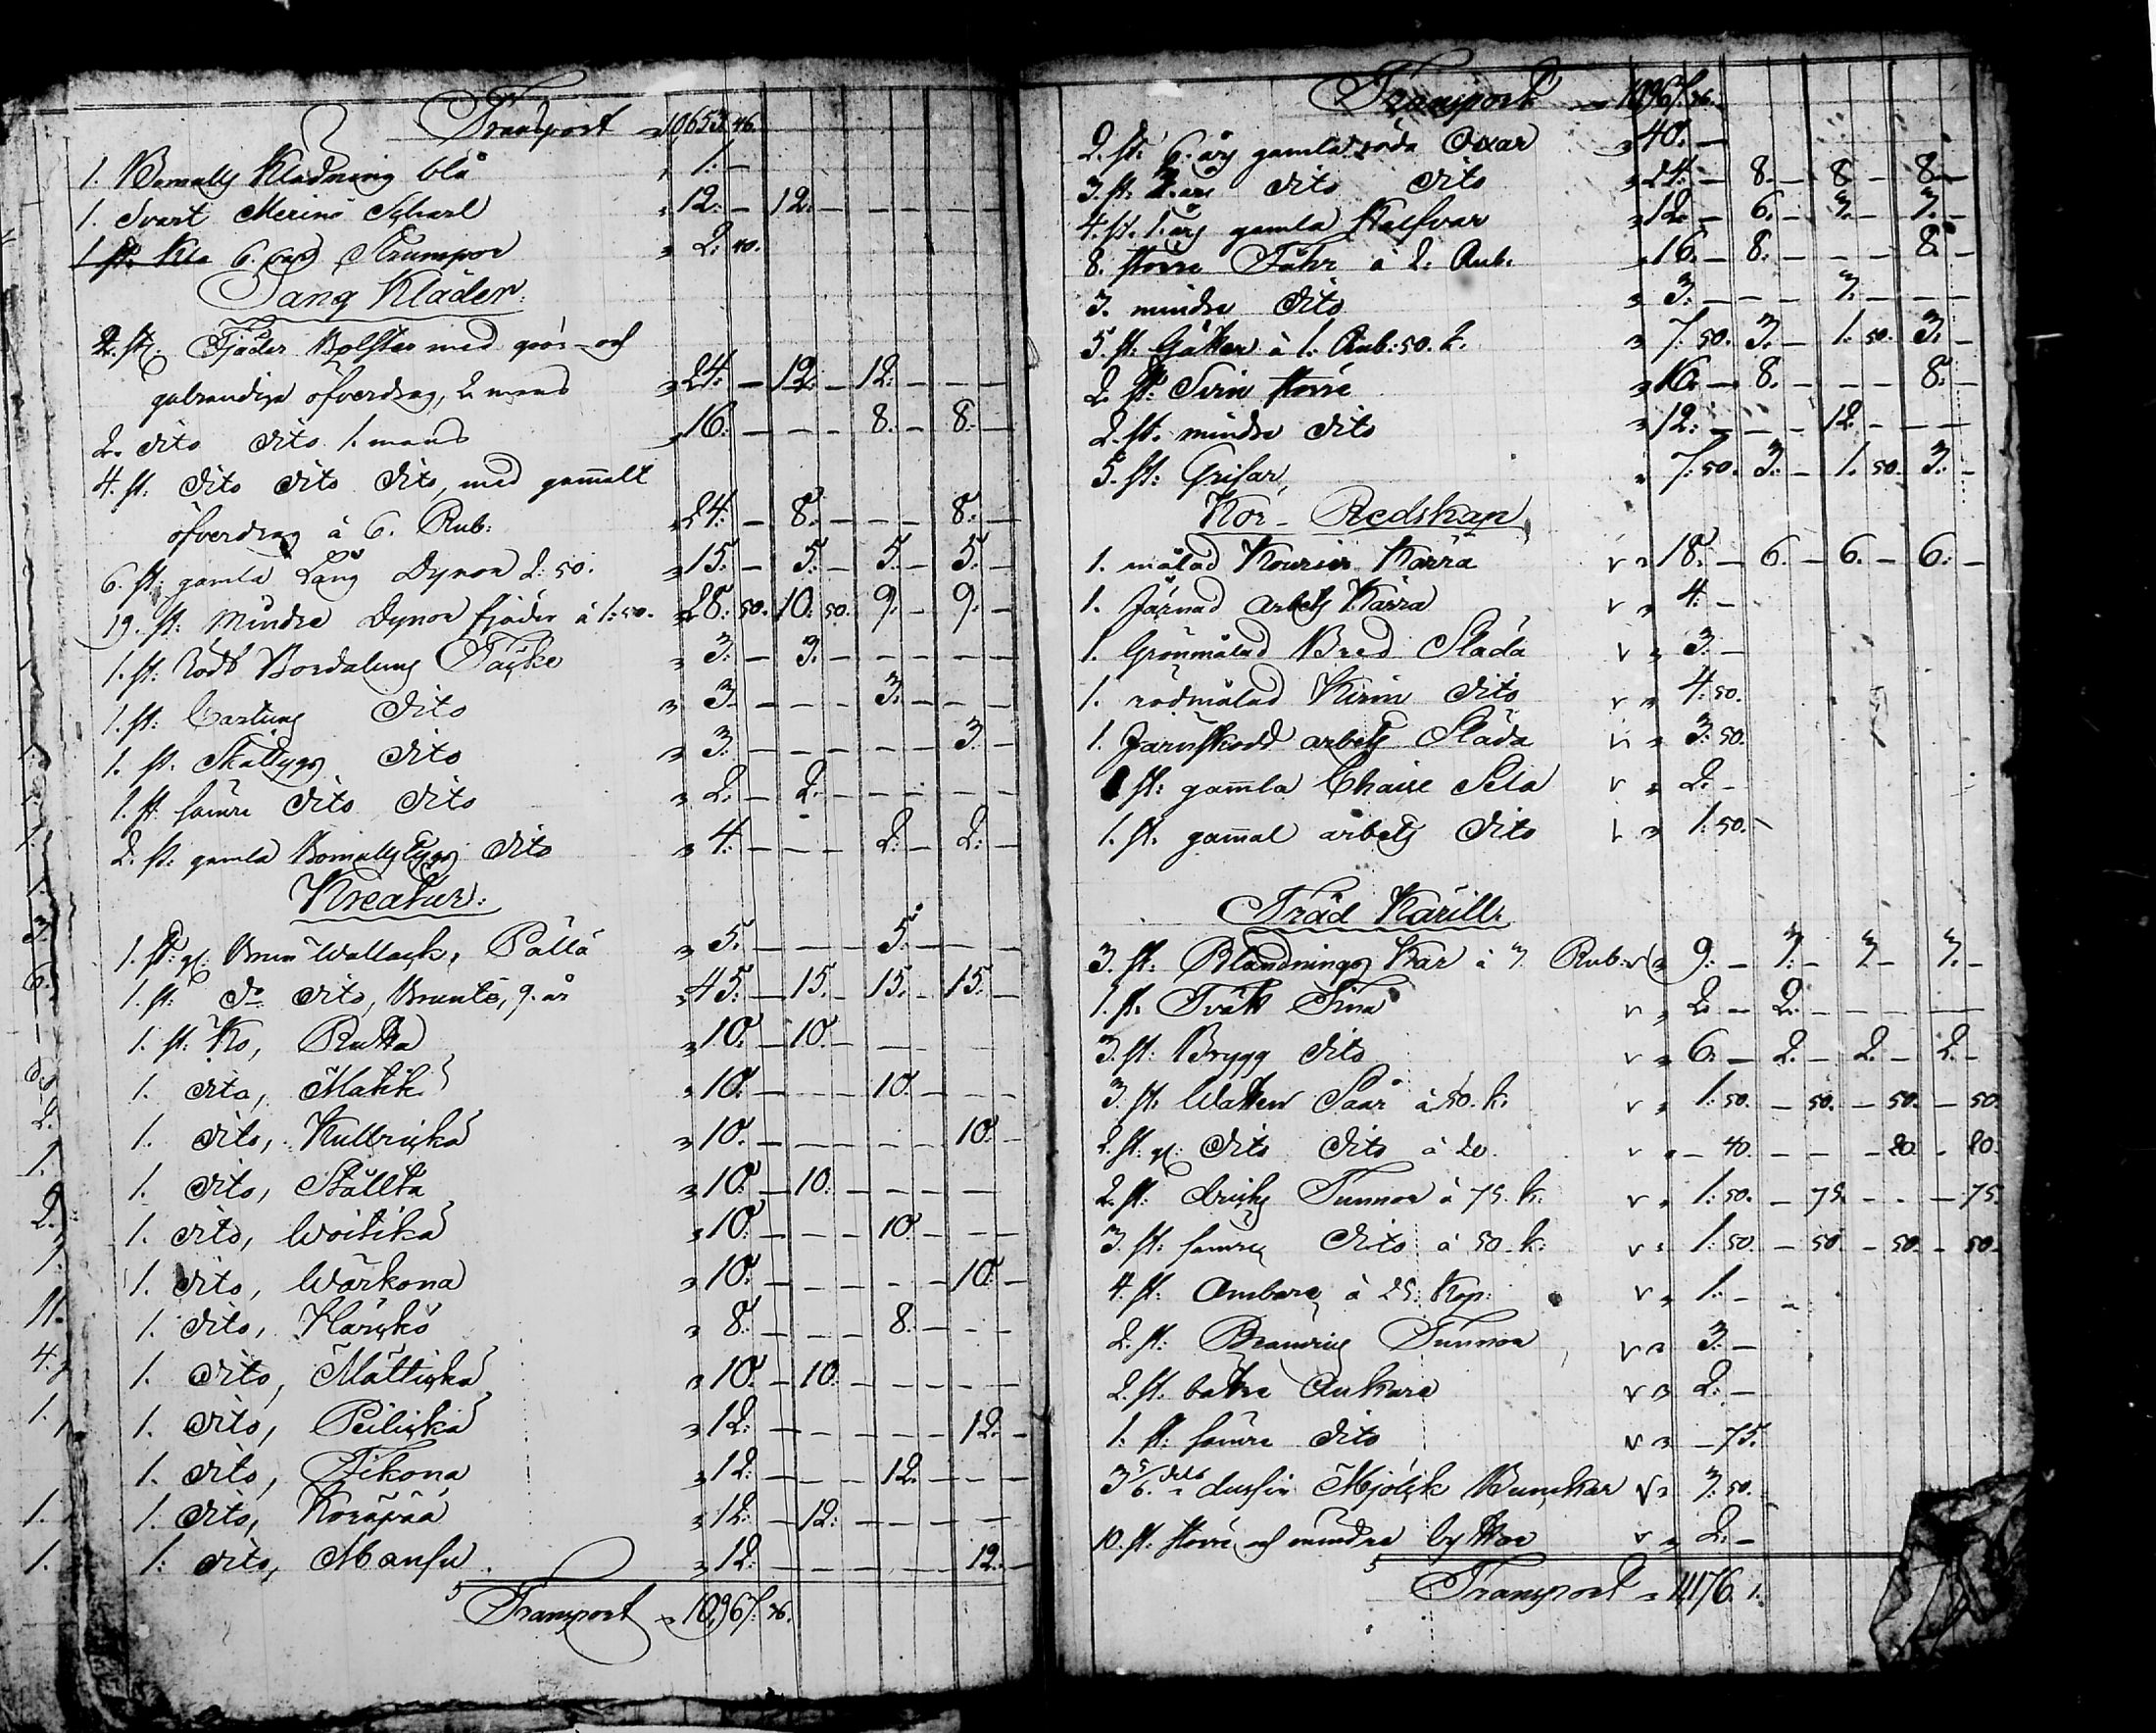 Transport " 10653. 46.
1. Bomulls Klädning blå " 1. —
1. Svart Merino Scharl " 12. — 12. — — — — —
1 st. Kla 6. par Strumpor " 2. 40.
Säng Kläder.
2. st. Fjäder Bolster med grön- och
gulrandiga öfverdrag, 2 mans " 24. — 12. — 12. — — —
2. dito dito 1. mans " 16. — — — 8. — 8. —
4. st: dito dito dito, med gamalt
öfverdrag à 6. Rub: " 24. — 8. — — — 8. —
6. st: gamla Lång Dynor 2: 50. " 15. — 5. — 5. — 5. —
19. st: Mindre Dynor fjäder à 1: 50. " 28. 50. 10. 50. 9. — 9. —
1. st: Rödt Täcke " 3. — 3. — — — — —
1. st: Cartuns Dito " 3. — — — 3. — — —
1. st. Dito " 3. — — — — — 3. —
1. st sämre dito dito " 2. — 2. — — — — —
2. st: gamla Bomullstygs dito " 4. — — — 2. — 2. —
Kreatur.
1. st: gl. Brun Wallack, Pållä " 5. — — — 5. — — —
1. st: do dito, Bruntë, 9. år " 45. — 15. — 15. — 15. —
1. st: Ko, Rutta " 10. — 10. — — —
1. dito, Matik " 10. — — — 10. — — —
1. dito, Kullricka " 10. — — — — — 10. —
1. dito, Ställta " 10. — 10. — — — —
1. dito, Woitika " 10. — — — 10. — — —
1. dito, Wärkona " 10. — — — — — 10. —
1. dito, Härickö " 8. — — — 8. — — —
1. dito, Mätticka " 10. — 10. — — — — —
1. dito, Peilicka " 12. — — — — — 12. —
1. dito, Tikona " 12. — — — 12. — — —
1. dito, Koräpää " 12. — 12. — — — — —
1. dito, Mansu " 12. — — — — — 12. —
Transport " 10,967. 36.
Transport " 10967. 36.
2. st: 6. års gamla röda Oxar " 40. —
3. st. 2. års dito dito " 24. — 8. — 8. — 8. —
4. st. 1. års gamla Kalfvar " 12. — 6. — 3. — 3. —
8. större Fåhr à 2. Rub. " 16. — 8. — — — 8. —
3. mindre dito " 3. — — — 3. — — —
5. st: Gåttor à 1. Rub: 50. k. " 7. 50. 3. — 1. 50. 3. —
2. st: Svin större " 16. — 8. — — — 8. —
2. st. mindre dito " 12. — — — 12. — — —
5. st: Grisar, " 7. 50. 3. — 1. 50. 3. —
Kör-Redskap
1. målad Kourier Kärra v " 18. — 6. — 6. — 6. —
1. Järnad arbets Kärra v " 4. —
1. Grönmålad Bred Släda v " 3. —
1. rödmålad dito v " 4. 50.
1. Järnskodd arbets Släda v " 3. 50.
1 st: gamla Chaise Sela v " 2. —
1. st. gamal arbets dito v " 1. 50.
Träd Käiril
3. st: Blandnings Kar à 3. Rub: v " 9. — 3. — 3. — 3. —
1. st. Tvätt Tina v " 2. — 2. — — — — —
3. st: Brygg dito v " 6. — 2. — 2. — 2. —
3. st. Watten Såår à 50. k. v " 1. 50. — 50. — 50. — 50.
2. st. gl. dito dito à 20. v " — 40. — — — 20. — 20.
2. st: dricks Tunnor à 75. k. v " 1. 50. — 75. — — — 75.
3. st: sämre dito à 50. k. v " 1. 50. — 50. — 50. — 50.
4. st: Ämbare à 25. Kop: v " 1. —
2. st: Tunnor v " 3. —
2. st. bättre Ankare v " 2. —
1. st. sämre dito v " — 75.
3 5/6 dels dussin Mjölck Bunckar v " 3. 50.
10. st. större och mindre byttor v " 2. —
Transport " 11,176. 1.